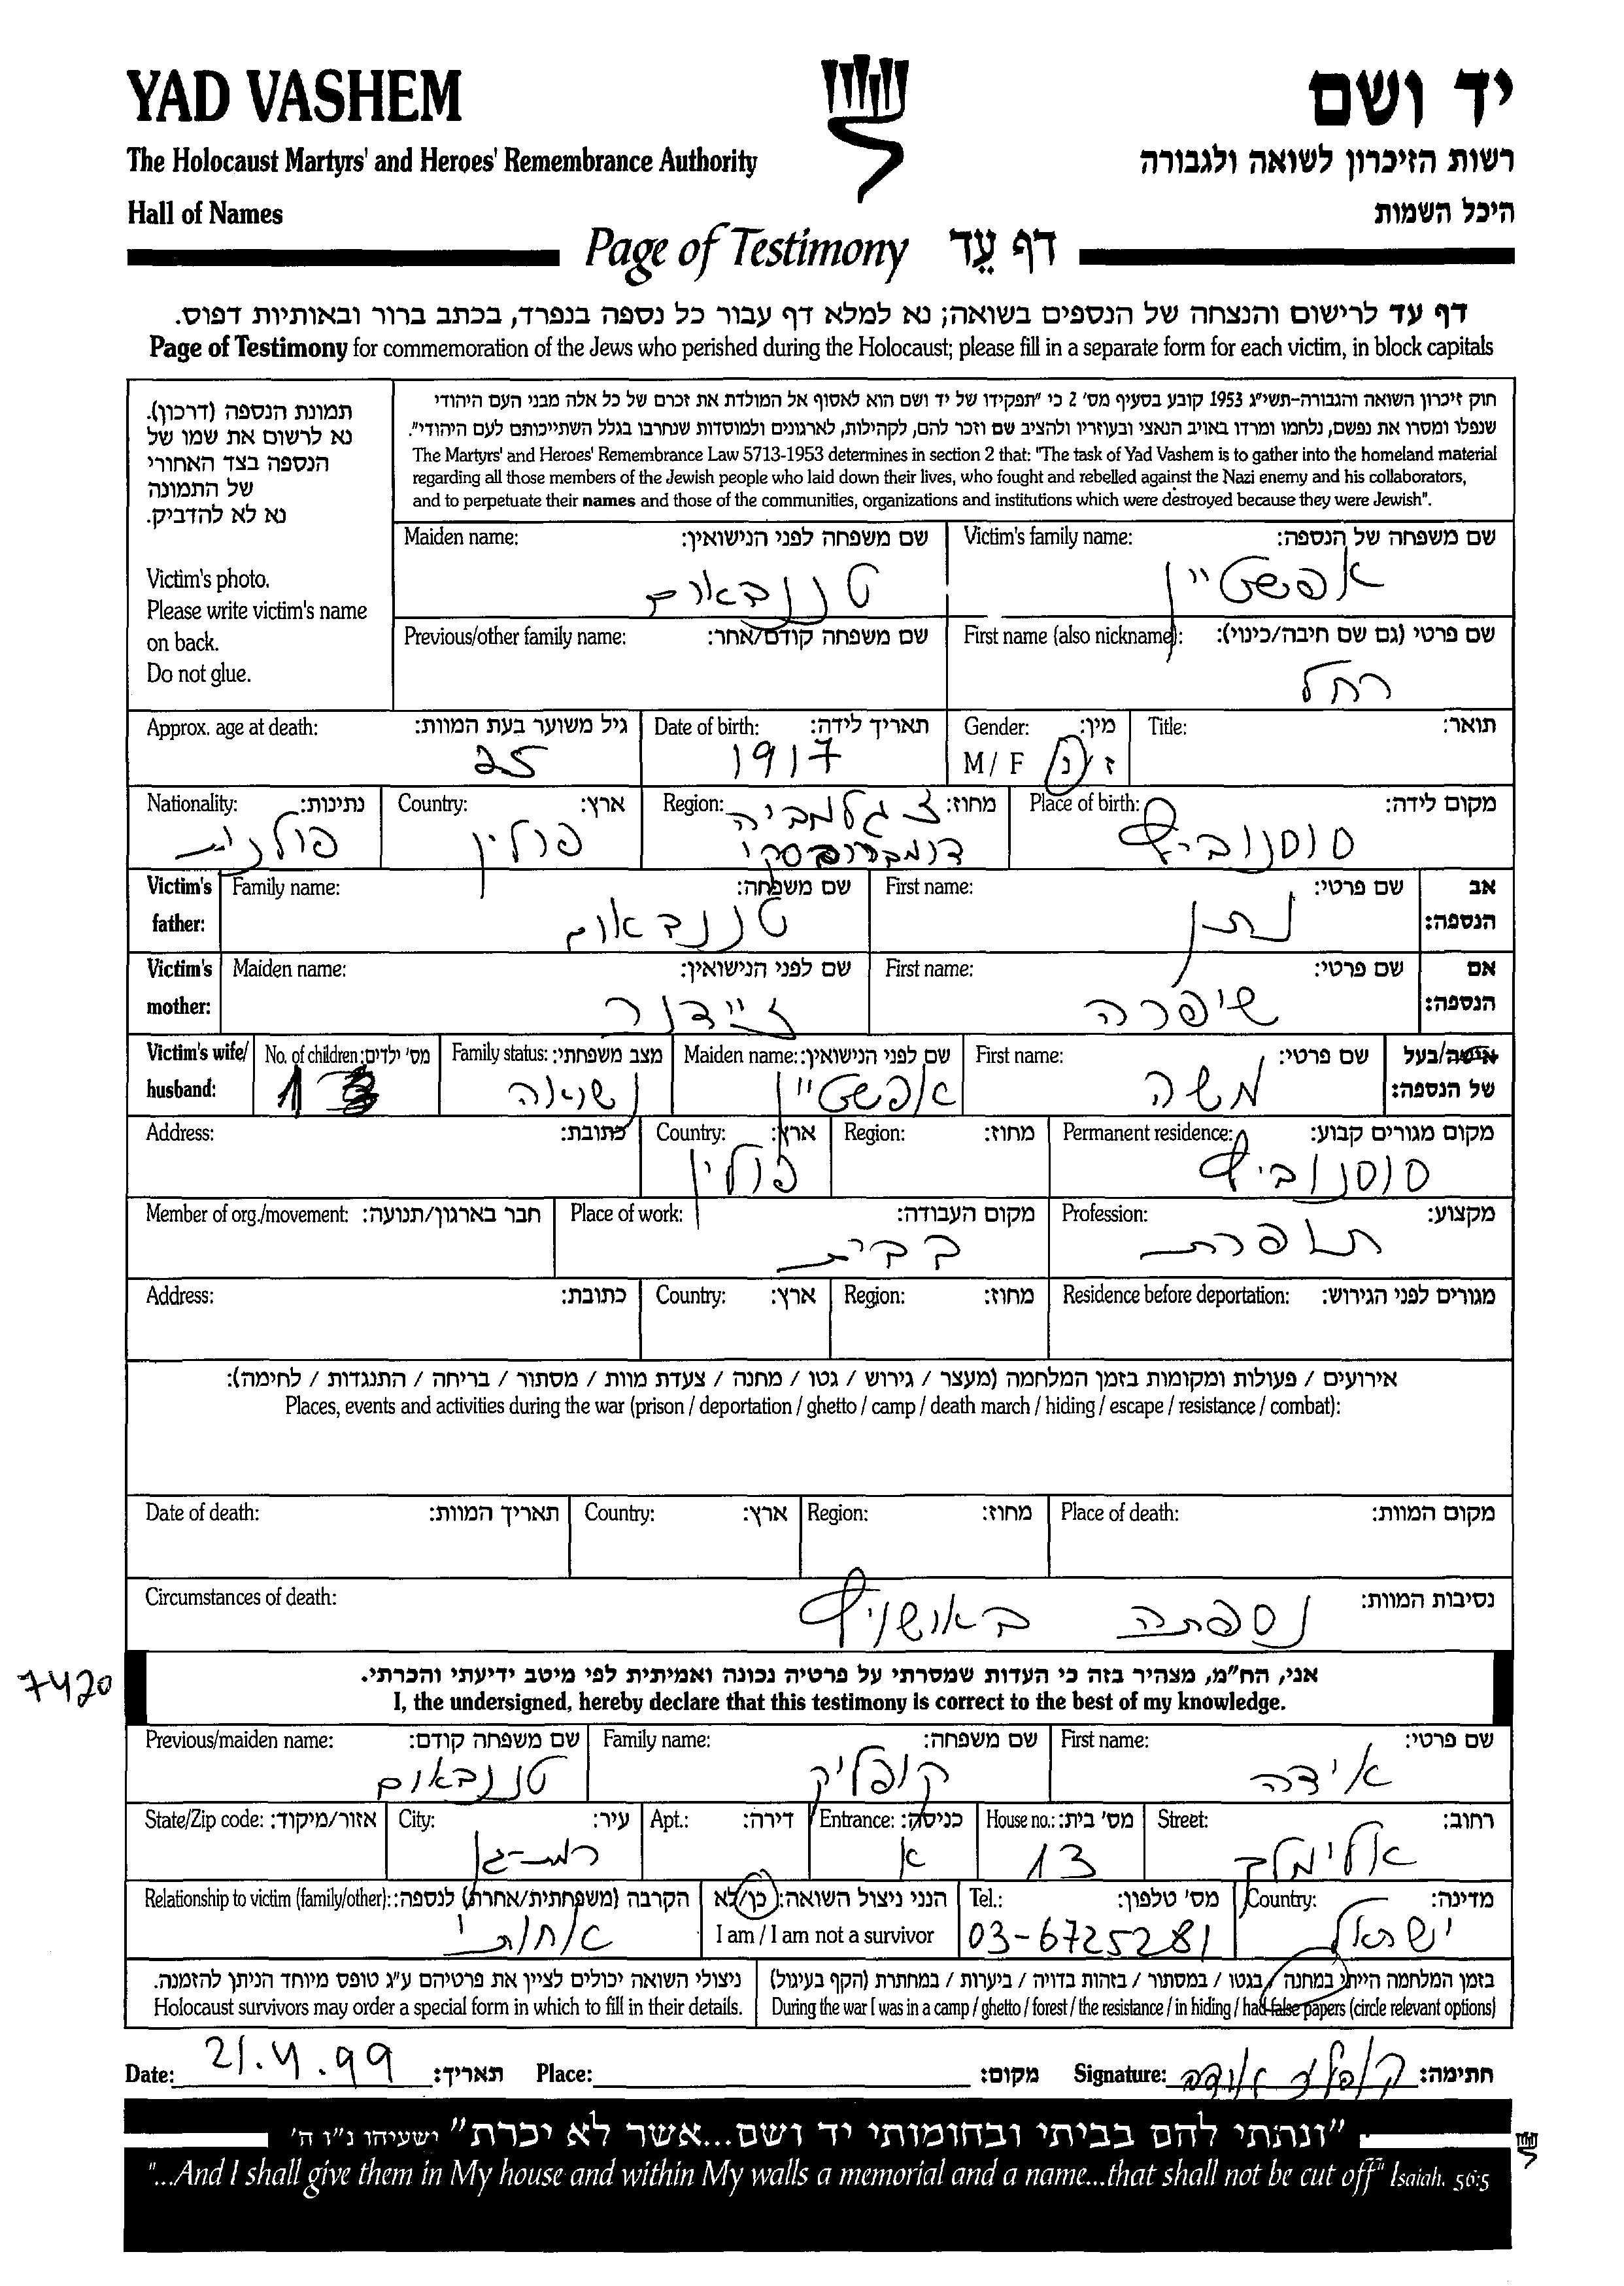 YAD VASHEM
יד ושם
The Holocaust Martyrs' and Heroes' Remembrance Authority
רשות הזיכרון לשואה ולגבורה
Hall of Names
היכל השמות
Page of Testimony דף עֵד
דף עד לרישום והנצחה של הנספים בשואה; נא למלא דף עבור כל נספה בנפרד, בכתב ברור ובאותיות דפוס.
Page of Testimony for commemoration of the Jews who perished during the Holocaust; please fill in a separate form for each victim, in block capitals
תמונת הנספה (דרכון).
נא לרשום את שמו של
הנספה בצד האחורי
של התמונה
נא לא להדביק.
Victim's photo.
Please write victim's name
on back.
Do not glue.
חוק זיכרון השואה והגבורה-תשי"ג 1953 קובע בסעיף מס' 2 כי "תפקידו של יד ושם הוא לאסוף אל המולדת את זכרם של כל אלה מבני העם היהודי
שנפלו ומסרו את נפשם, נלחמו ומרדו באויב הנאצי ובעוזריו ולהציב שם וזכר להם, לקהילות, לארגונים ולמוסדות שנחרבו בגלל השתייכותם לעם היהודי".
The Martyrs' and Heroes' Remembrance Law 5713-1953 determines in section 2 that: "The task of Yad Vashem is to gather into the homeland material
regarding all those members of the Jewish people who laid down their lives, who fought and rebelled against the Nazi enemy and his collaborators,
and to perpetuate their names and those of the communities, organizations and institutions which were destroyed because they were Jewish".
Victim's family name: שם משפחה של הנספה:
אפשטיין
Maiden name: שם משפחה לפני הנישואין:
טננבאום
First name (also nickname): שם פרטי (גם שם חיבה/כינוי):
רחל
Previous/other family name: שם משפחה קודם/אחר:
Title: תואר:
Gender: מין:
M / F ז / נ
Date of birth: תאריך לידה:
1917
Approx. age at death: גיל משוער בעת המוות:
25
Place of birth: מקום לידה:
סוסנוביץ
Region: מחוז:
זגלמביה
דומברובסקי
Country: ארץ:
פולין
Nationality: נתינות:
פולנית
Victim's father: אב הנספה:
First name: שם פרטי:
נתן
Family name: שם משפחה:
טננבאום
Victim's mother: אם הנספה:
First name: שם פרטי:
שיפרה
Maiden name: שם לפני הנישואין:
זיידנר
Victim's wife/ husband: אישה/בעל של הנספה:
First name: שם פרטי:
משה
Maiden name: שם לפני הנישואין:
אפשטיין
Family status: מצב משפחתי:
נשואה
No. of children: מס' ילדים:
1
Permanent residence: מקום מגורים קבוע:
סוסנוביץ
Region: מחוז:
Country: ארץ:
פולין
Address: כתובת:
Profession: מקצוע:
תופרת
Place of work: מקום העבודה:
בבית
Member of org./movement: חבר בארגון/תנועה:
Residence before deportation: מגורים לפני הגירוש:
Region: מחוז:
Country: ארץ:
Address: כתובת:
אירועים / פעולות ומקומות בזמן המלחמה (מעצר / גירוש / גטו / מחנה / צעדת מוות / מסתור / בריחה / התנגדות / לחימה):
Places, events and activities during the war (prison / deportation / ghetto / camp / death march / hiding / escape / resistance / combat):
Place of death: מקום המוות:
Region: מחוז:
Country: ארץ:
Date of death: תאריך המוות:
Circumstances of death: נסיבות המוות:
נספתה באושויץ
7420
אני, הח"מ, מצהיר בזה כי העדות שמסרתי על פרטיה נכונה ואמיתית לפי מיטב ידיעתי והכרתי.
I, the undersigned, hereby declare that this testimony is correct to the best of my knowledge.
First name: שם פרטי:
אידה
Family name: שם משפחה:
קופליק
Previous/maiden name: שם משפחה קודם:
טננבאום
Street: רחוב:
אלימלך
House no.: מס' בית:
13
Entrance: כניסה:
א
Apt.: דירה:
City: עיר:
רמת-גן
State/Zip code: אזור/מיקוד:
Country: מדינה:
ישראל
Tel.: מס' טלפון:
03-6725281
הנני ניצול השואה: כן/לא
I am / I am not a survivor
Relationship to victim (family/other): הקרבה (משפחתית/אחרת) לנספה:
אחותי
בזמן המלחמה הייתי במחנה / בגטו / במסתור / בזהות בדויה / ביערות / במחתרת (הקף בעיגול)
During the war I was in a camp / ghetto / forest / the resistance / in hiding / had false papers (circle relevant options)
ניצולי השואה יכולים לציין את פרטיהם ע"ג טופס מיוחד הניתן להזמנה.
Holocaust survivors may order a special form in which to fill in their details.
Date: 21.4.99 תאריך:
Place: מקום:
Signature: קופליק אידה חתימה:
"ונתתי להם בביתי ובחומותי יד ושם...אשר לא יכרת" ישעיהו נ"ו ה'
"...And I shall give them in My house and within My walls a memorial and a name...that shall not be cut off" Isaiah. 56:5